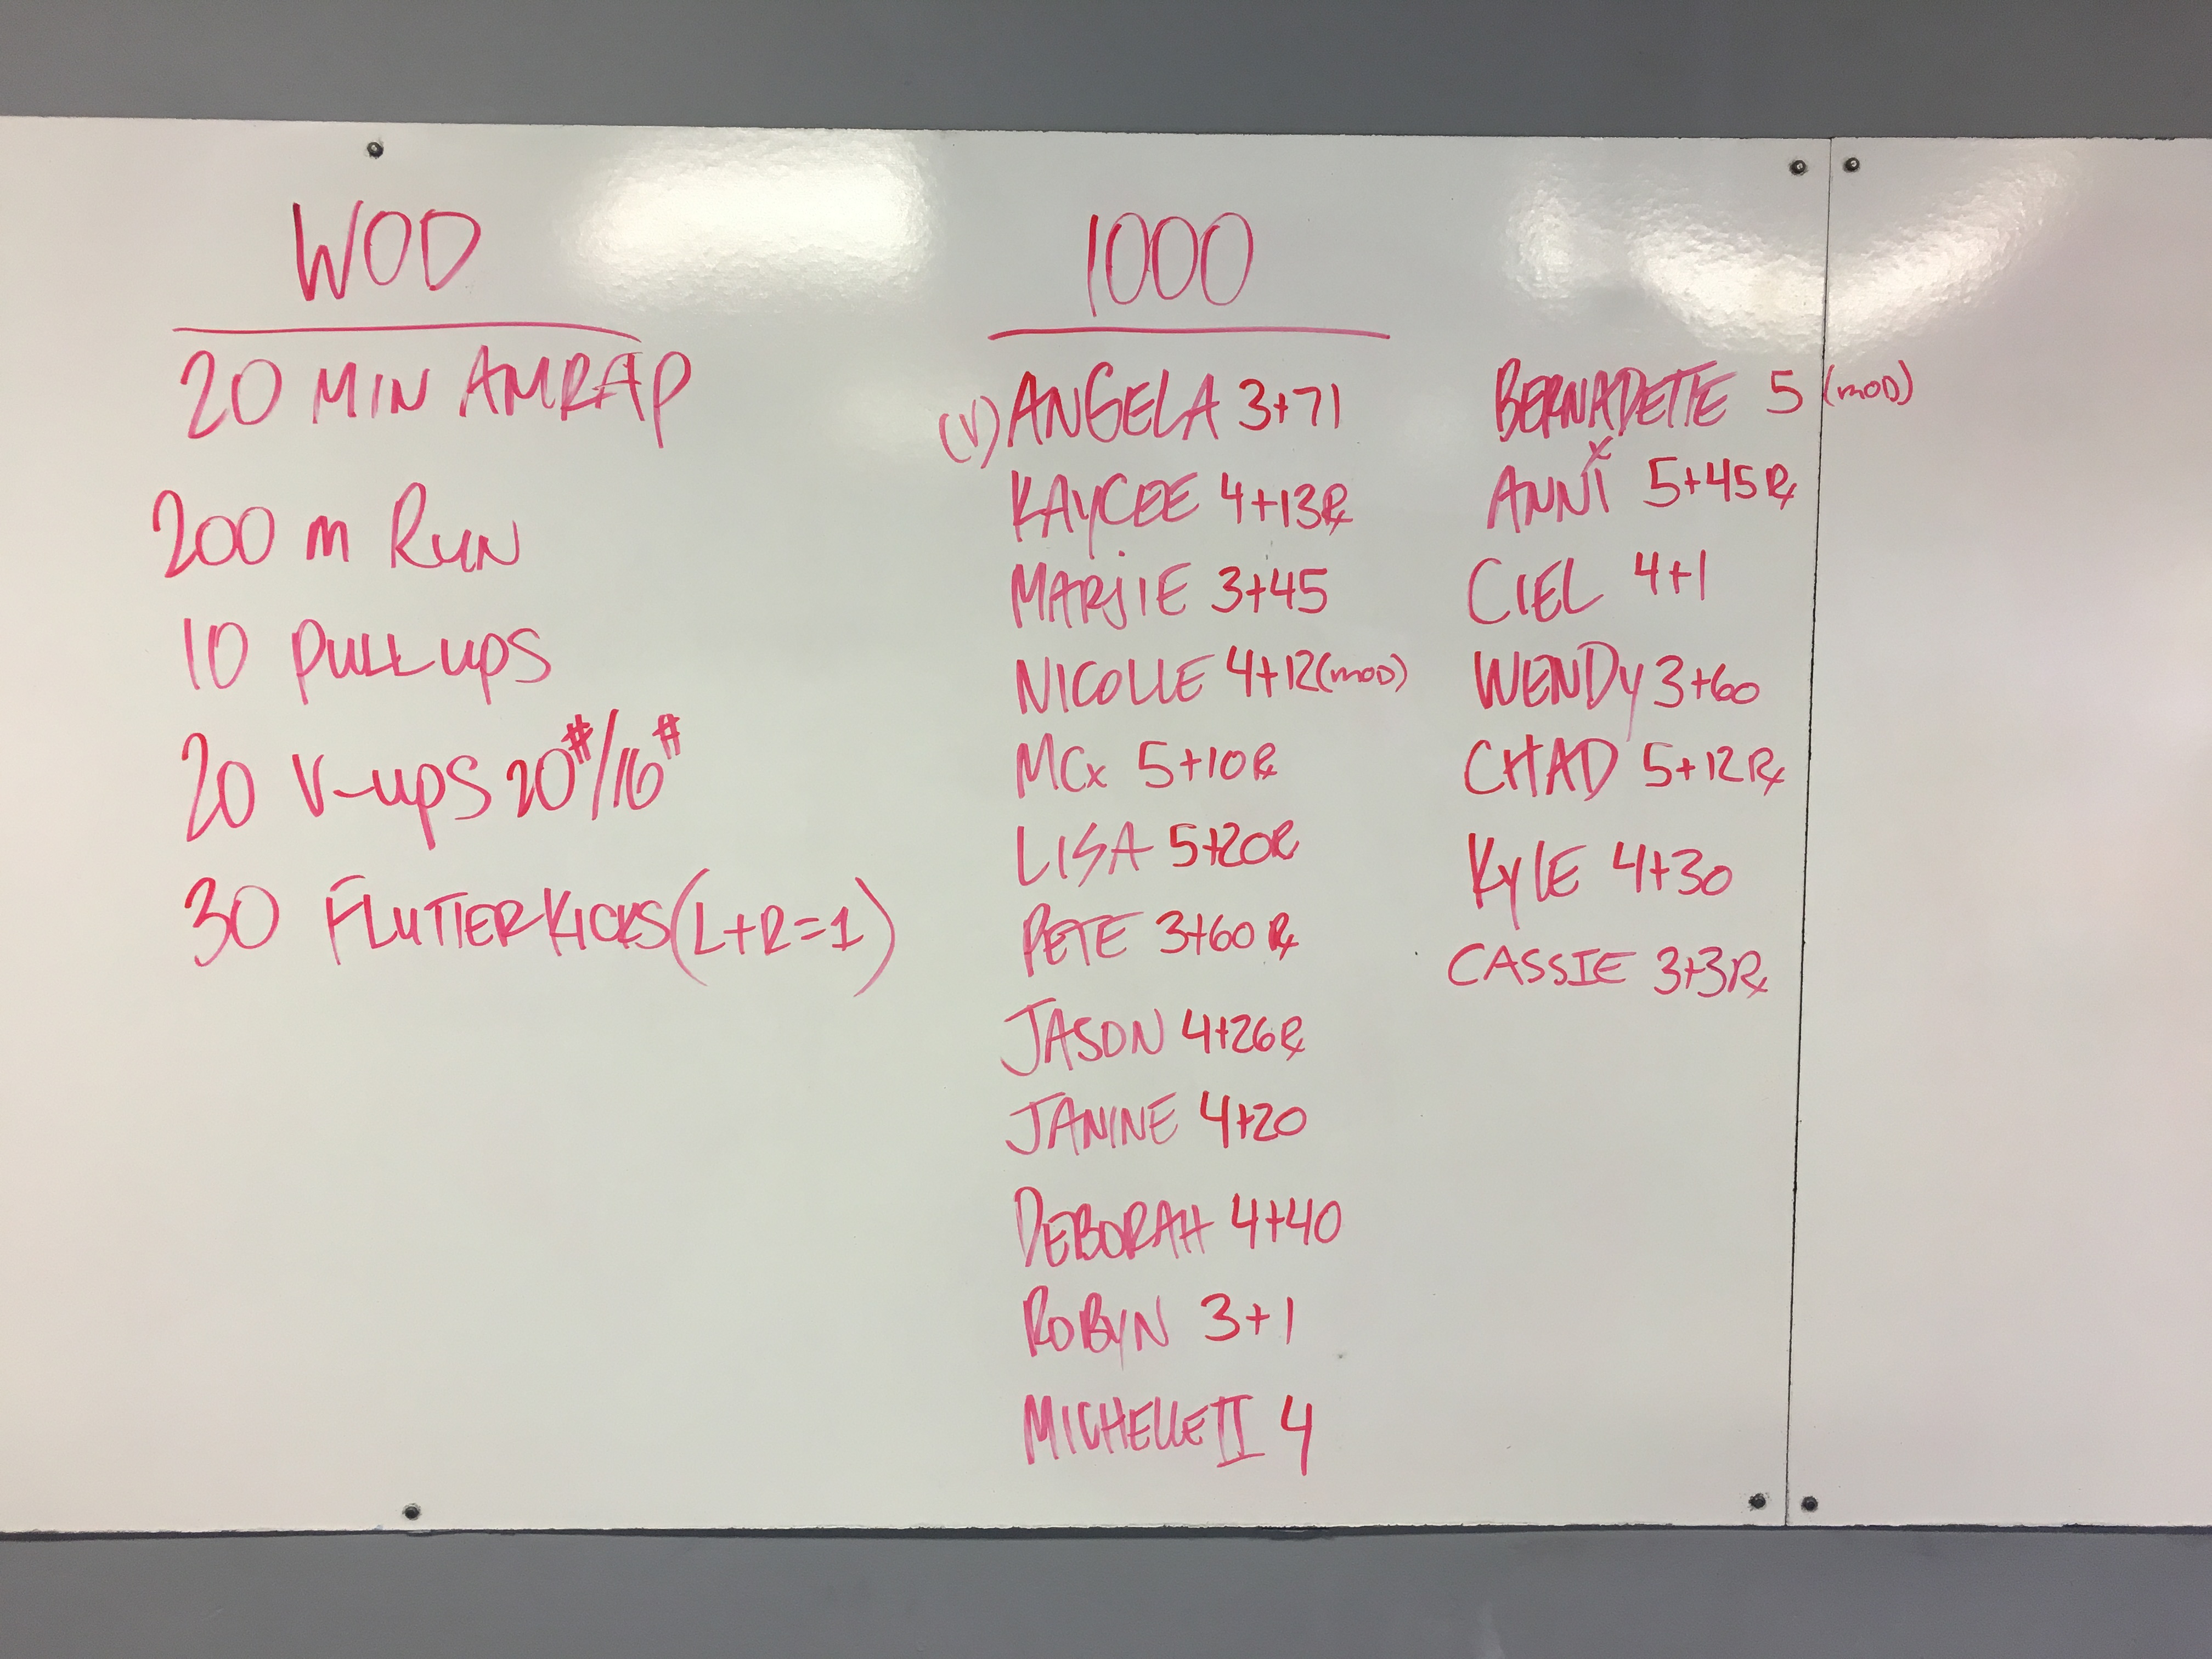 WOD
20 MIN AMRAP
200 m RUN
10 PULLUPS
20 V-UPS 20#/16#
30 FLUTTER KICKS (L+R=1)
1000
(V) ANGELA 3+71
KAYCEE 4+13 Rx
MARJIE 3+45
NICOLLE 4+12 (MOD)
MCx 5+10 Rx
LISA 5+20 Rx
PETE 3+60 Rx
JASON 4+26 Rx
JANINE 4+20
DEBORAH 4+40
ROBYN 3+1
MICHELLE II 4
BERNADETTE 5 (MOD)
ANNI 5+45 Rx
CIEL 4+1
WENDY 3+60
CHAD 5+12 Rx
KYLE 4+30
CASSIE 3+3 Rx